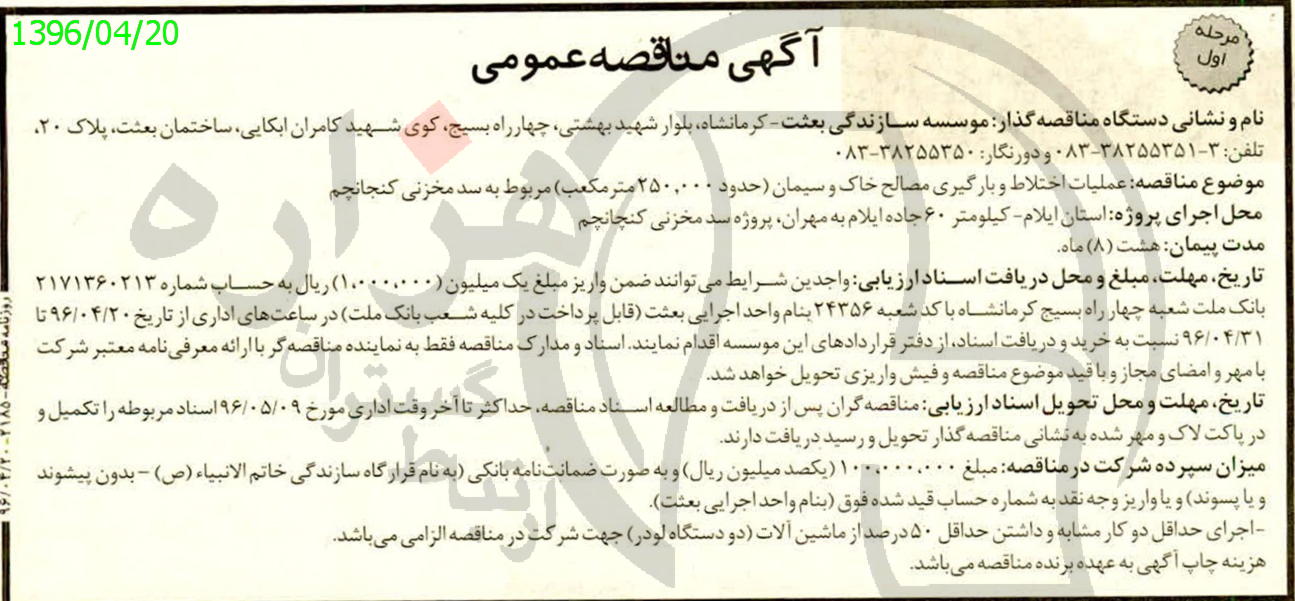 1396/04/20
مرحله
اول
آگهی مناقصه عمومی
نام و نشانی دستگاه مناقصه گذار: موسسه سازندگی بعثت - کرمانشاه، بلوار شهید بهشتی، چهارراه بسیج، کوی شهید کامران ابکایی، ساختمان بعثت، پلاک ۲۰،
تلفن: ۳-۳۸۲۵۵۳۵۱-۰۸۳ و دورنگار: ۳۸۲۵۵۳۵۰-۰۸۳
موضوع مناقصه: عملیات اختلاط و بارگیری مصالح خاک و سیمان (حدود ۲۵۰,۰۰۰ متر مکعب) مربوط به سد مخزنی کنجانچم
محل اجرای پروژه: استان ایلام - کیلومتر ۶۰ جاده ایلام به مهران، پروژه سد مخزنی کنجانچم
مدت پیمان: هشت (۸) ماه.
تاریخ، مهلت، مبلغ و محل دریافت اسناد ارزیابی: واجدین شرایط می توانند ضمن واریز مبلغ یک میلیون (۱,۰۰۰,۰۰۰) ریال به حساب شماره ۲۱۷۱۳۶۰۲۱۳
بانک ملت شعبه چهار راه بسیج کرمانشاه با کد شعبه ۲۴۳۵۶ بنام واحد اجرایی بعثت (قابل پرداخت در کلیه شعب بانک ملت) در ساعت‌های اداری از تاریخ ۹۶/۰۴/۲۰ تا
۹۶/۰۴/۳۱ نسبت به خرید و دریافت اسناد، از دفتر قراردادهای این موسسه اقدام نمایند. اسناد و مدارک مناقصه فقط به نماینده مناقصه گر با ارائه معرفی نامه معتبر شرکت
با مهر و امضای مجاز و با قید موضوع مناقصه و فیش واریزی تحویل خواهد شد.
تاریخ، مهلت و محل تحویل اسناد ارزیابی: مناقصه گران پس از دریافت و مطالعه اسناد مناقصه، حداکثر تا آخر وقت اداری مورخ ۹۶/۰۵/۰۹ اسناد مربوطه را تکمیل و
در پاکت لاک و مهر شده به نشانی مناقصه گذار تحویل و رسید دریافت دارند.
میزان سپرده شرکت در مناقصه: مبلغ ۱۰۰,۰۰۰,۰۰۰ (یکصد میلیون ریال) و به صورت ضمانت‌نامه بانکی (به نام قرارگاه سازندگی خاتم الانبیاء (ص) - بدون پیشوند
و یا پسوند) و یا واریز وجه نقد به شماره حساب قید شده فوق (بنام واحد اجرایی بعثت).
-اجرای حداقل دو کار مشابه و داشتن حداقل ۵۰ درصد از ماشین آلات (دو دستگاه لودر) جهت شرکت در مناقصه الزامی می‌باشد.
هزینه چاپ آگهی به عهده برنده مناقصه می‌باشد.
روزنامه مناقصه-۲۱۸۵-۹۶/۰۴/۲۰
هزاره
گستران
ارتباط